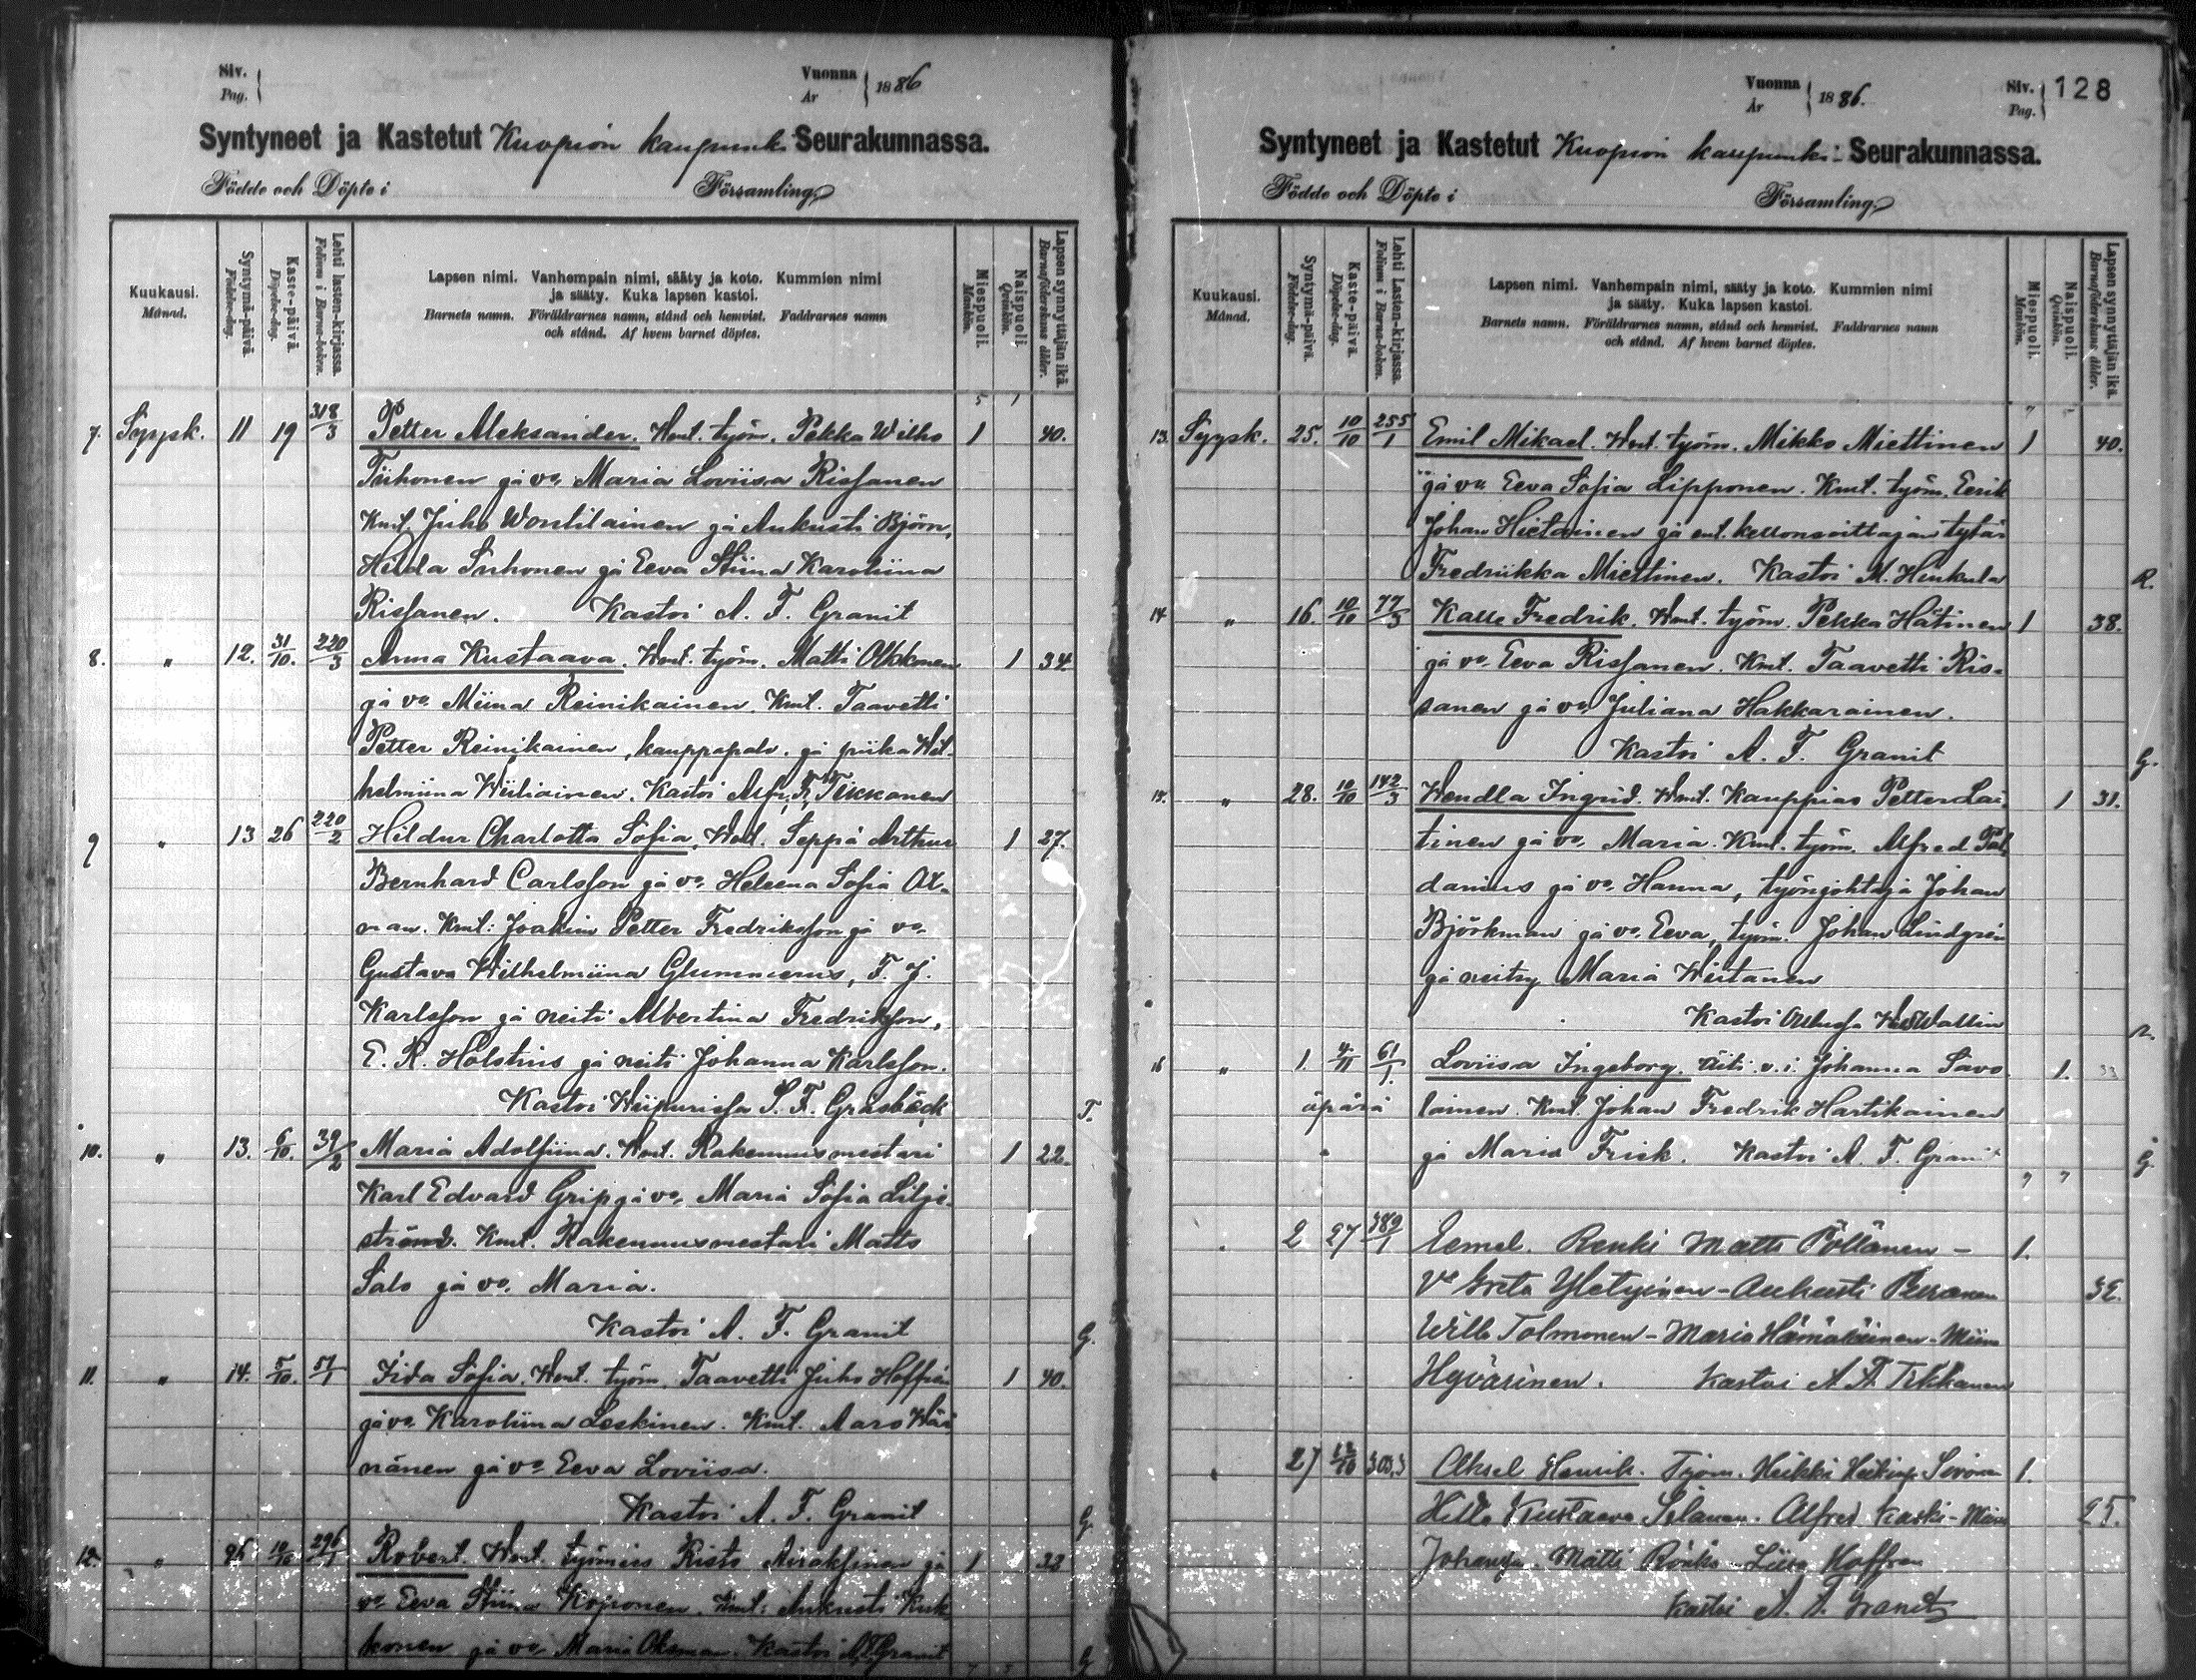 Siv.
Pag.
Vuonna
År
1886
Syntyneet ja Kastetut Kuopion kaupunki Seurakunnassa.
Födde och Döpte i Församling.
Kuukausi.
Månad.
Syntymä-päivä.
Födelse-dag.
Kaste-päivä.
Döpelse-dag.
Lehti lasten-kirjassa.
Folium i Barna-boken.
Lapsen nimi. Vanhempain nimi, sääty ja koto. Kummien nimi
ja sääty. Kuka lapsen kastoi.
Barnets namn. Föräldrarnes namn, stånd och hemvist. Faddrarnes namn
och stånd. Af hvem barnet döptes.
Miespuoli.
Mankön.
Naispuoli.
Qvinkön.
Lapsen synnyttäjän ikä.
Barnaföderskans ålder.
7. Syysk. 11 19 318/3 Petter Aleksander. Wmt. työm. Pekka Wilho 1 40.
Tiihonen ja vo. Maria Loviisa Rissanen
Kmt. Juho Wontilainen ja Aukusti Björn,
Hilda Inhonen ja Eeva Stiina Karoliina
Rissanen. Kastoi A. F. Granit
8. " 12. 31/10. 220/3 Anna Kustaava. Wmt. työm. Matti Olkkonen 1 34
ja vo. Miina Reinikainen. Kmt. Taavetti
Petter Reinikainen, kauppapalv. ja piika Wil-
helmiina Wiiliainen. Kastoi Alfr. F. Tikkanen
9 " 13 26 220/2 Hildur Charlotta Sofia, Wmt. Seppä Arthur 1 27.
Bernhard Carlsson ja vo. Heleena Sofia
Kmt: Joakim Petter Fredriksson ja vo.
Gustava Wilhelmiina Glummerus, F. J.
Karlsson ja neiti Albertina Fredriksson,
E. R. Holstius ja neiti Johanna Karlsson.
Kastoi Wiipurissa S. F. Gråsbäck T.
10. " 13. 6/10. 39/2 Maria Adolfiina. Wmt. Rakennusmestari 1 22.
Karl Edvard Grip ja vo. Maria Sofia Lilje-
strönd. Kmt. Rakennusmestari Matts
Salo ja vo. Maria.
Kastoi A. F. Granit G.
11. " 14. 5/10. 51/1 Iida Sofia. Wmt. työm. Taavetti Juho Hoffrén 1 40.
ja vo. Karoliina Leskinen. Kmt. Aaro Wäi
nänen ja vo Eeva Loviisa.
Kastoi A. F. Granit G
12. " 26 10/10 296/1 Robert. Wmt. työmies Risto Airaksinen ja 1 33
vo Eeva Stiina Kojronen. Kmt: Aukusti Kuk
konen ja vo Maria Oksman. Kastoi A. F. Granit G
Vuonna
År
1886.
Siv.
Pag.
128
Syntyneet ja Kastetut Kuopion kaupunki- Seurakunnassa.
Födde och Döpte i Församling.
Kuukausi.
Månad.
Syntymä-päivä.
Födelse-dag.
Kaste-päivä.
Döpelse-dag.
Lehti Lasten-kirjassa.
Folium i Barna-boken.
Lapsen nimi. Vanhempain nimi, sääty ja koto. Kummien nimi
ja sääty. Kuka lapsen kastoi.
Barnets namn. Föräldrarnes namn, stånd och hemvist. Faddrarnes namn
och stånd. Af hvem barnet döptes.
Miespuoli.
Mankön.
Naispuoli.
Qvinkön.
Lapsen synnyttäjän ikä.
Barnaföderskans ålder.
13. Syysk. 25. 10/10 255/1 Emil Mikael. Wmt. työm. Mikko Miettinen 1 40.
ja vo. Eeva Sofia Lipponen. Kmt. työm. Eerik
Johan Hietainen ja ent. kellonsoittajan tytär
Fredriikka Miettinen. Kastoi M. Hinkula R.
14 " 16. 10/10 77/3 Kalle Fredrik. Wmt. työm. Pekka Hätinen 1 38.
ja vo. Eeva Rissanen. Kmt. Taavetti Ris-
sanen ja vo Juliana Hakkarainen.
Kastoi A. F. Granit G.
15. " 28. 10/10 142/3 Wendla Ingrid. Wmt. Kauppias Petter Lai- 1 31.
tinen ja vo. Maria. Kmt. työm. Alfred Pal
danius ja vo. Hanna, työnjohtaja Johan
Björkman ja vo. Eeva, työm. Johan Lindgrén
ja neitsy Maria Wiitanen
Kastoi Wallin
16 " 1. 4/11 61/1. Loviisa Ingeborg. Äiti: v. i. Johanna Savo 1. 33
äpärä lainen. Kmt. Johan Fredrik Hartikainen
ja Maria Frisk. Kastoi A. F. Granit G
2 27 389/1 Eemel. Renki Matti Pöllänen - 1.
vo Greta Yletyinen - Aukusti Puranen 32.
Wille Tolmonen - Maria Hämäläinen - Miina
Hyvärinen. Kastoi A. F. Tikkanen
27 12/10 303,3 Aksel Henrik. Työm. Heikki 1.
Hilda Kustaava Alfred Kaski - Miina 25.
Johanna. Matti Rönkö - Liisa Hoffren
Kastoi A. F. Granit